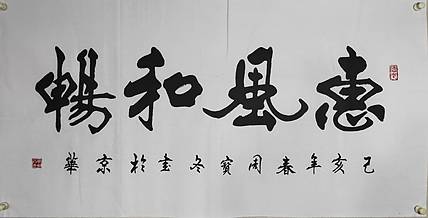 惠風和暢
己亥年春周寶冬書於京華